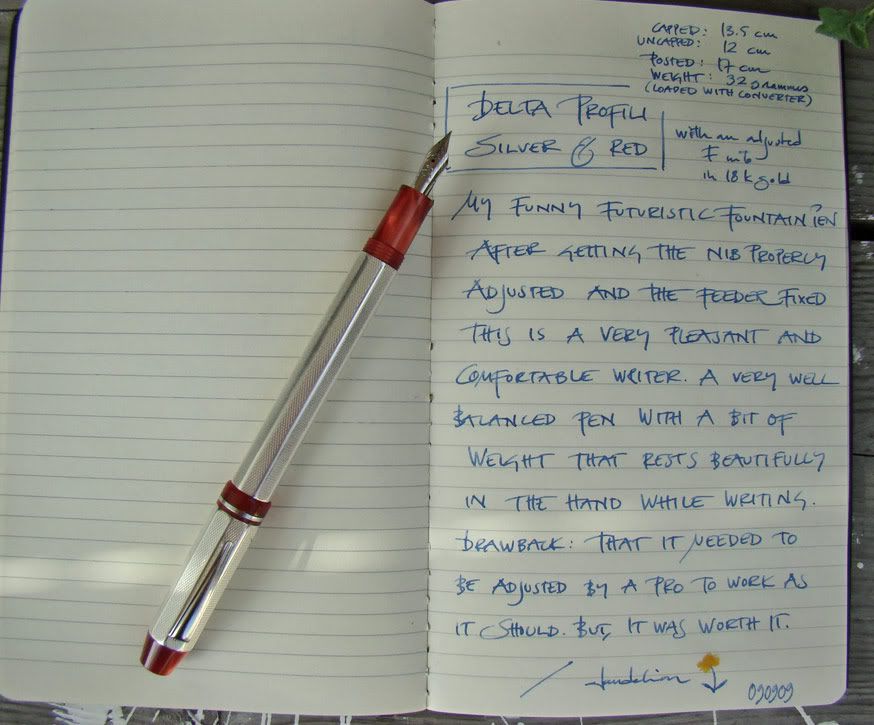 CAPPED: 13.5 cm
UNCAPPED: 12 cm
POSTED: 17 cm
WEIGHT: 32 grammes
(LOADED WITH CONVERTER)
DELTA PROFILI
SILVER & RED
with an adjusted
F nib
in 18K gold
MY FUNNY FUTURISTIC FOUNTAIN PEN
AFTER GETTING THE NIB PROPERLY
ADJUSTED AND THE FEEDER FIXED
THIS IS A VERY PLEASANT AND
COMFORTABLE WRITER. A VERY WELL
BALANCED PEN WITH A BIT OF
WEIGHT THAT RESTS BEAUTIFULLY
IN THE HAND WHILE WRITING.
DRAWBACK: THAT IT NEEDED TO
BE ADJUSTED BY A PRO TO WORK AS
IT SHOULD. BUT, IT WAS WORTH IT.
/ dandelion
090909